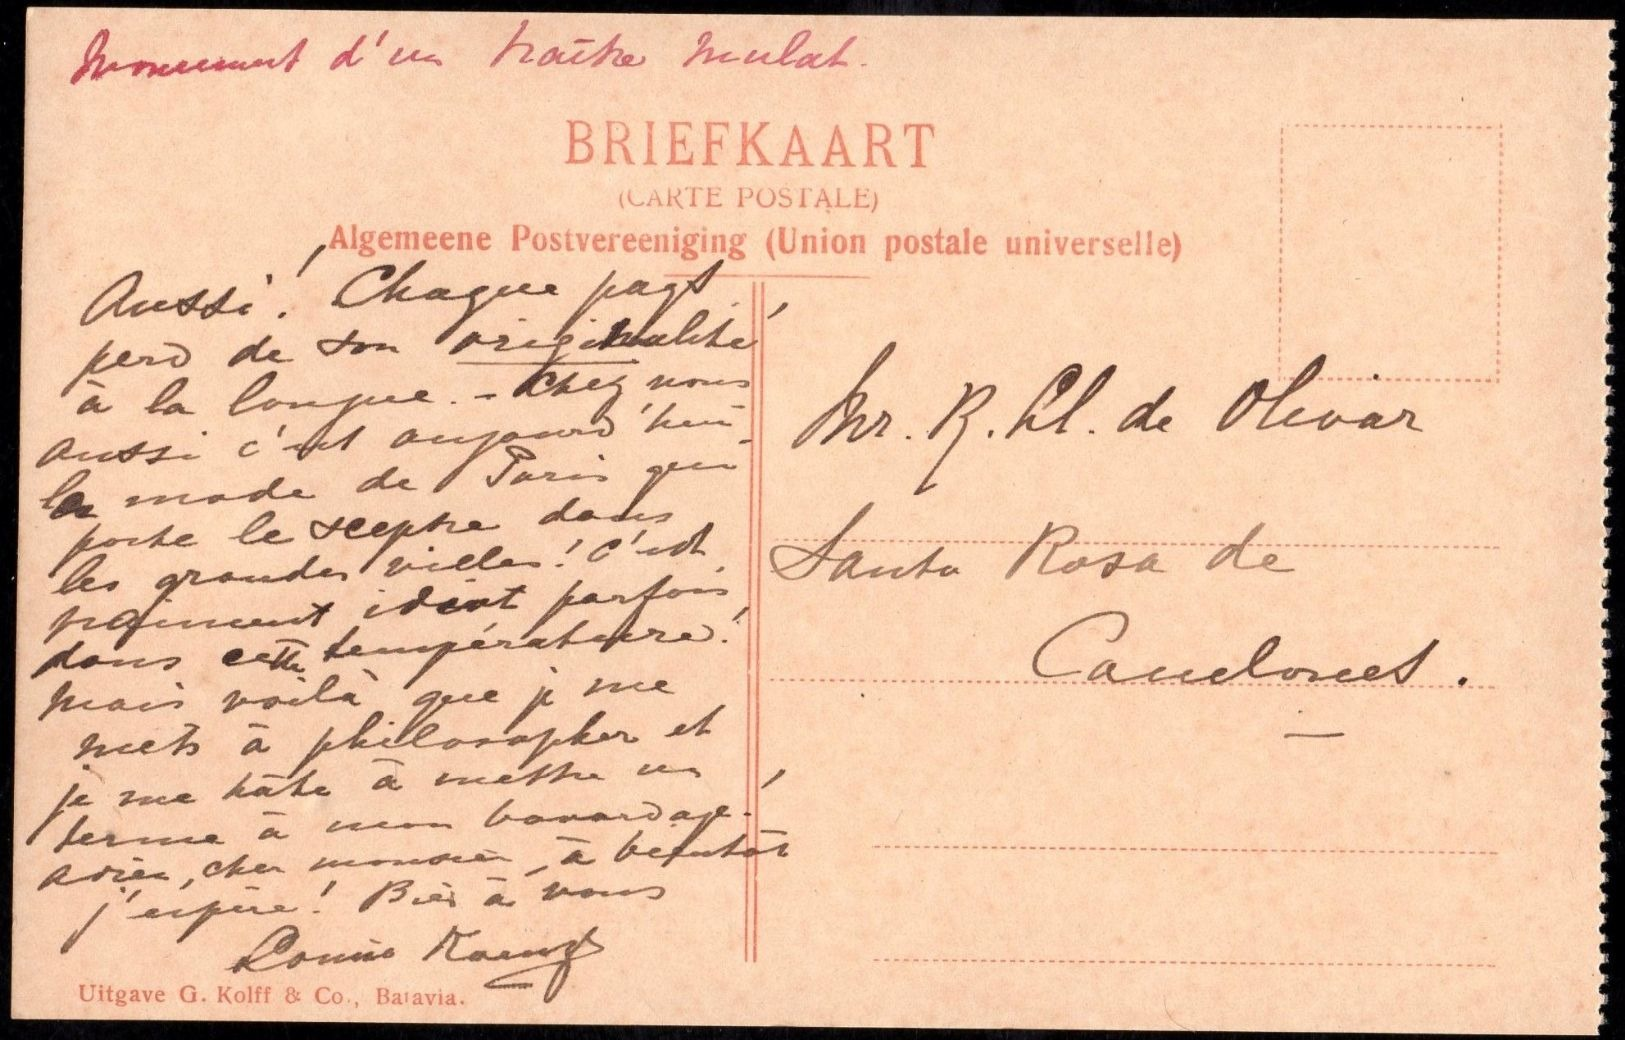 Monument d'un traître mulat.
BRIEFKAART
(CARTE POSTALE)
Algemeene Postvereeniging (Union postale universelle)
Aussi! Chaque pays
perd de son originalité
à la longue. - Chez nous
aussi c'est aujourd'hui
la mode de Paris qui
porte le sceptre dans
les grandes villes! C'est
vraiment idiot parfois
dans cette température!
Mais voilà que je me
mets à philosopher et
je me hâte à mettre un
terme à mon bavardage!
Adieu, cher monsieur, à bientôt
j'espère! Bien à vous
Uitgave G. Kolff & Co., Batavia.
Mr. R. Cl. de Olivar
Santa Rosa de
Canelones.